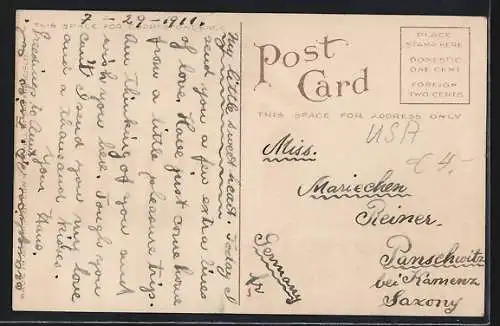 7-29-1911.
My little sweet heart. Today I
send you a few extra lines
of love. Have just come home
from a little pleasure trip.
Am thinking of you and
wish you here. Tough you
can't I send you my love
and a thousand kisses.
Your Hans.
Greetings to Aunt
POST CARD
THIS SPACE FOR ADDRESS ONLY
PLACE
STAMP HERE
DOMESTIC
ONE CENT
FOREIGN
TWO CENTS
USA
4.-
Miss.
Mariechen
Reiner.
Panschwitz
bei Kamenz
Saxony
Germany